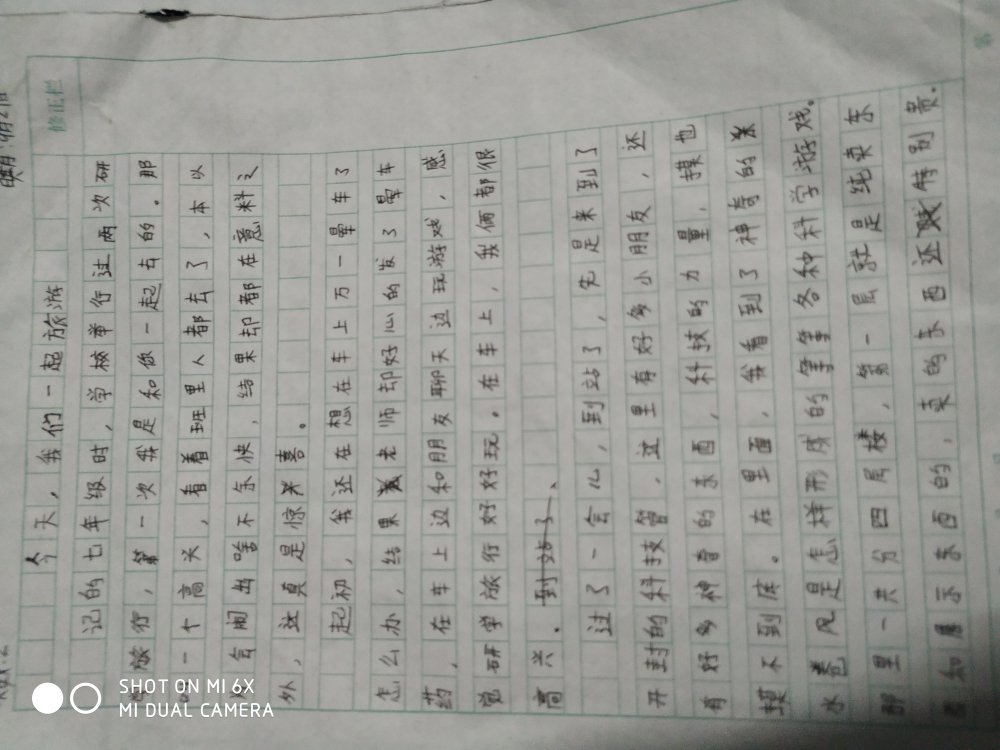 修正栏
今天，我们一起旅游
记的七年级时，学校举行过两次研
旅行，第一次我是和你一起去的。那
一个高兴，看着班里人都去了，本以
会闹出啥不乐快，结果却都在意料之
外，这真是惊喜。
起初，我还在想在车上万一晕车了
怎么办，结果老师却好心的发了晕车
药，在车上边和朋友聊天边玩游戏，感
觉研学旅行好好玩。在车上，我俩都很
高兴。到站了、
过了一会儿，到站了，先是来到了
开封的科技管，这里有好多小朋友，还
有好多神奇的东西，科技的力量，摸也
摸不到底。在里面，我看到了神奇的
水卷风是怎样形成的等等各种科学游戏。
那里一共分四层楼，第一层就是纯卖东
和展示东西的，卖的东西还特别贵。
SHOT ON MI 6X
MI DUAL CAMERA